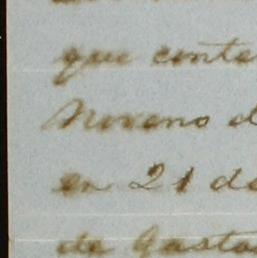 que conte
Moreno d
en 21 de
de Gasto